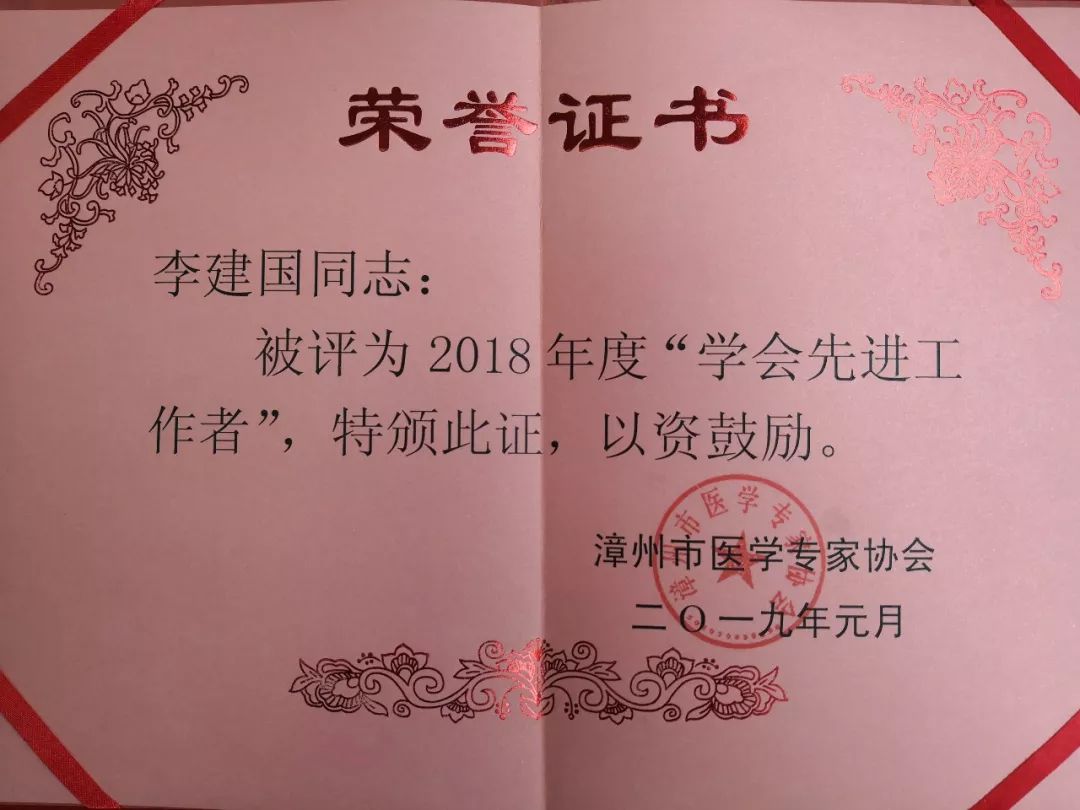 荣誉证书
李建国同志：
被评为2018年度“学会先进工
作者”，特颁此证，以资鼓励。
漳州市医学专家协会
漳州市医学专家协会
二〇一九年元月